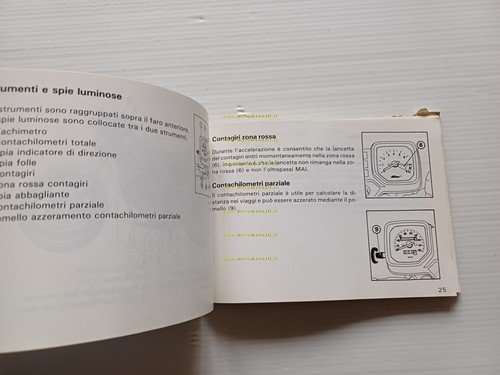 rumenti e spie luminose
strumenti sono raggruppati sopra il faro anteriore.
spie luminose sono collocate tra i due strumenti.
achimetro
ontachilometri totale
pia indicatore di direzione
pia folle
ontagiri
ona rossa contagiri
pia abbagliante
ontachilometri parziale
omello azzeramento contachilometri parziale
Contagiri zona rossa
Durante l'accelerazione è consentito che la lancetta
del contagiri entri momentaneamente nella zona rossa
(6). Importante è che la lancetta non rimanga nella zo-
na rossa (6) e non l'oltrepassi MAI.
Contachilometri parziale
Il contachilometri parziale è utile per calcolare la di-
stanza nei viaggi e può essere azzerato mediante il po-
mello (9).
25